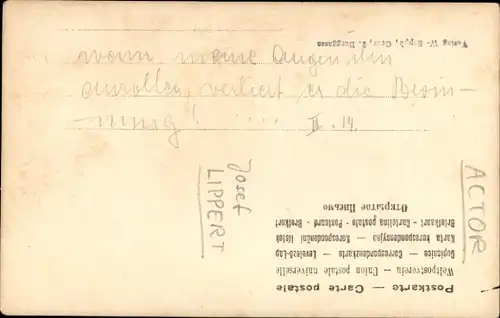 wann meine Augen ihn
anrollen, verliert er die Besin-
-nung! .... II. 14.
Josef
LIPPERT
ACTOR
Postkarte — Carte postale
Weltpostverein — Union postale universelle
Dopisnice — Correspondenzkarte — Levelező-Lap
Karta korespondencyjna — Korespondenční lístek
Briefkaart — Cartolina postale — Postcard — Brefkort
Открытое Письмо
Verlag W.